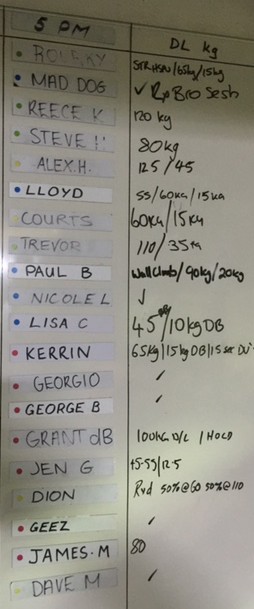 5 PM DL kg
ROUSKY STRHSPU/65kg/15kg
MAD DOG ✓ Rx Bro Sesh
REECE K 120 kg
STEVE 80kg
ALEX.H. 125/45
LLOYD 55/60kg/15kg
COURTS 60kg/15kg
TREVOR 110/35kg
PAUL B WallClimb/90kg/20kg
NICOLE L ✓
LISA C 45/10kg DB
KERRIN 65kg/15kg DB/15
GEORGIO ✓
GEORGE B ✓
GRANT dB 100kg D/L / HOLD
JEN G 45-55/12.5
DION Rxd 50%@60 50%@110
GEEZ ✓
JAMES.M 80
DAVE M ✓